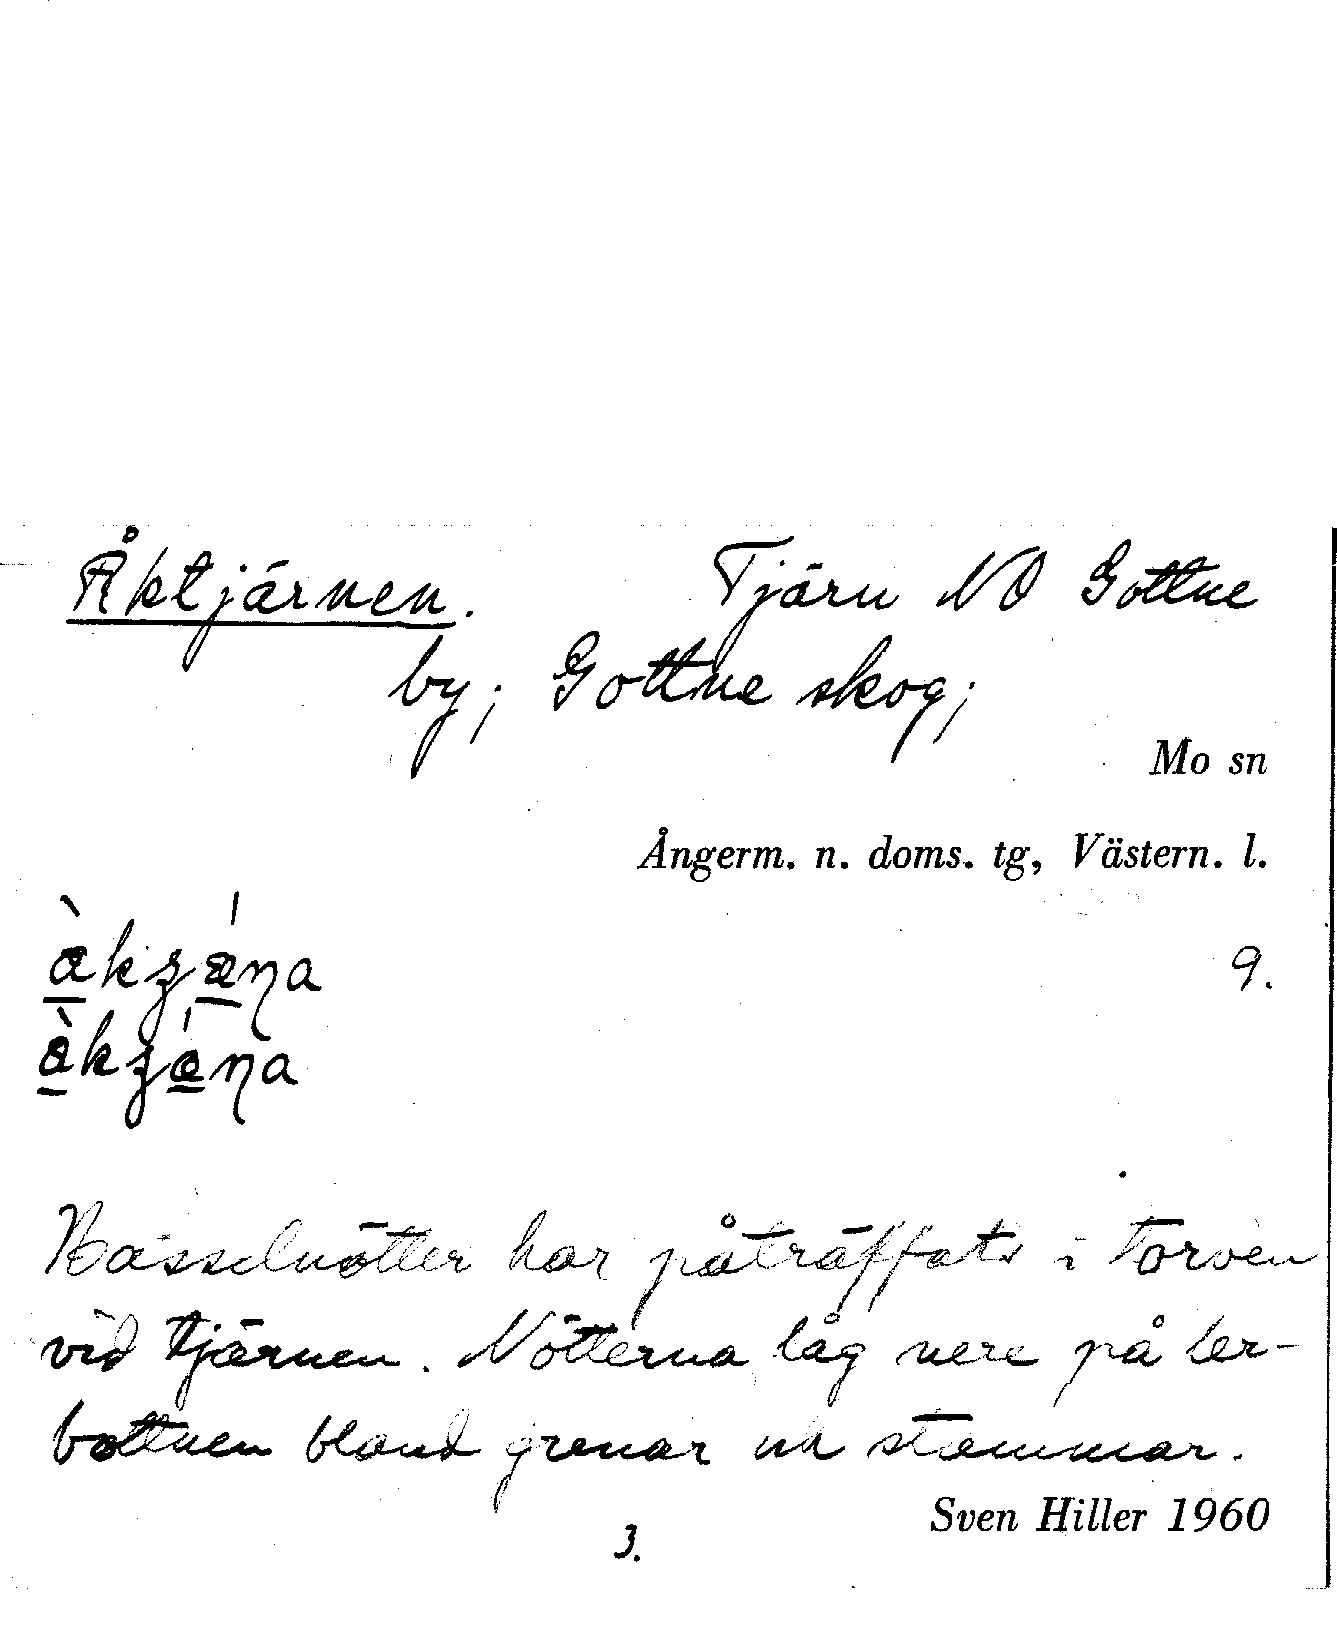 Åktjärnen. Tjärn NO Gottne
by; Gottne skog;
Mo sn
Ångerm. n. doms. tg, Västern. l.
9.
Hasselnötter har påträffats i torven
vid tjärnen. Nötterna låg nere på ler-
bottnen bland grenar och stammar.
Sven Hiller 1960
3.